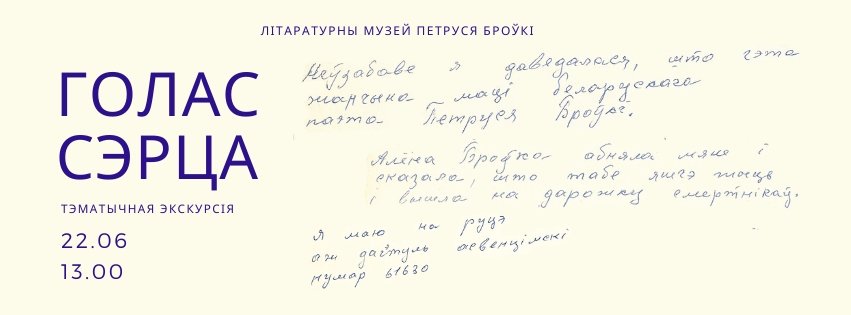 ЛІТАРАТУРНЫ МУЗЕЙ ПЕТРУСЯ БРОЎКІ
ГОЛАС
СЭРЦА
ТЭМАТЫЧНАЯ ЭКСКУРСІЯ
22.06
13.00
Неўзабаве я даведалася, што гэта
жанчына маці беларускага
паэта Петруся Броўкі.
Алёна Броўка абняла мяне і
сказала, што табе яшчэ жыць
і выйшла на дарожку смертнікаў.
Я маю на руцэ
аж дагэтуль асвенцімскі
нумар 61630